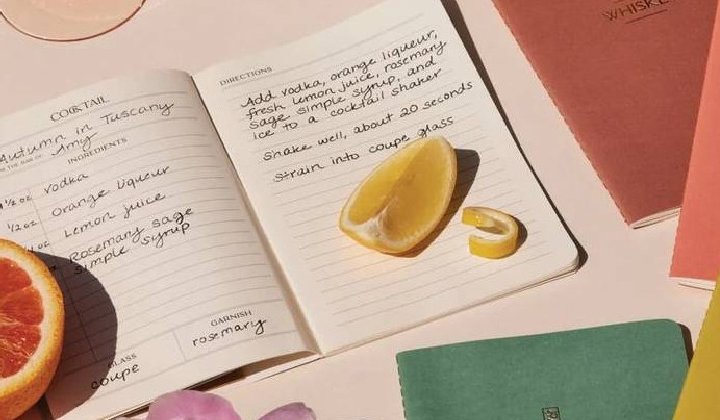 COCKTAIL
Autumn in Tuscany
Amy
INGREDIENTS
1½ oz vodka
1/2 oz orange liqueur
lemon juice
Rosemary sage
simple syrup
GLASS
coupe
GARNISH
rosemary
DIRECTIONS
Add vodka, orange liqueur,
fresh lemon juice, rosemary
sage simple syrup, and
ice to a cocktail shaker
Shake well, about 20 seconds
Strain into coupe glass